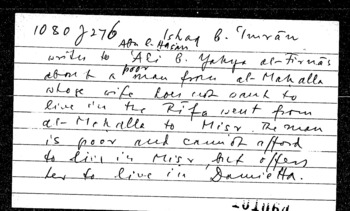 1080 J 276 Ishaq b. 'Imrān
writes to Abu l-Hasan 'Ali b. Yahya al-Firnās
about a poor man from al-Mahalla
whose wife does not want to
live in the Rīfa went from
al-Mahalla to Misr. The man
is poor and cannot afford
to live in Misr, but offers
her to live in Damietta.